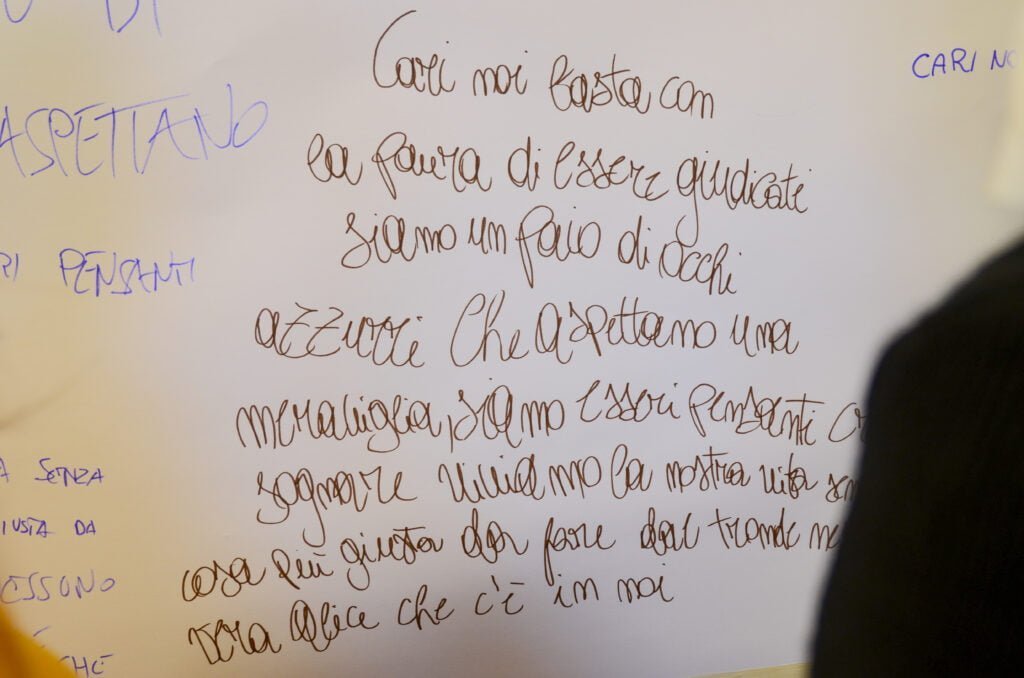 DI
ASPETTANO
RI PENSANTI
A SENZA
IUSTA DA
ESSUNO
CHE
Cari noi basta con
la paura di essere giudicati
siamo un paio di occhi
azzurri Che aspettano una
meraviglia, siamo esseri pensanti
sognare viviamo la nostra vita sen
cosa più giusta da fare
vera Alice che c'è in noi
CARI NO